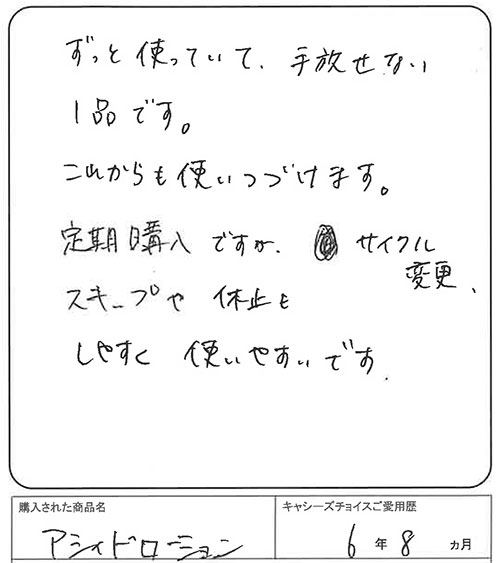 ずっと使っていて、手放せない
1品です。
これからも使いつづけます。
定期購入ですが、サイクル
変更、
スキップや 休止も
しやすく 使いやすいです.
購入された商品名
アシィドローション
キャシーズチョイスご愛用歴
6年8ヵ月